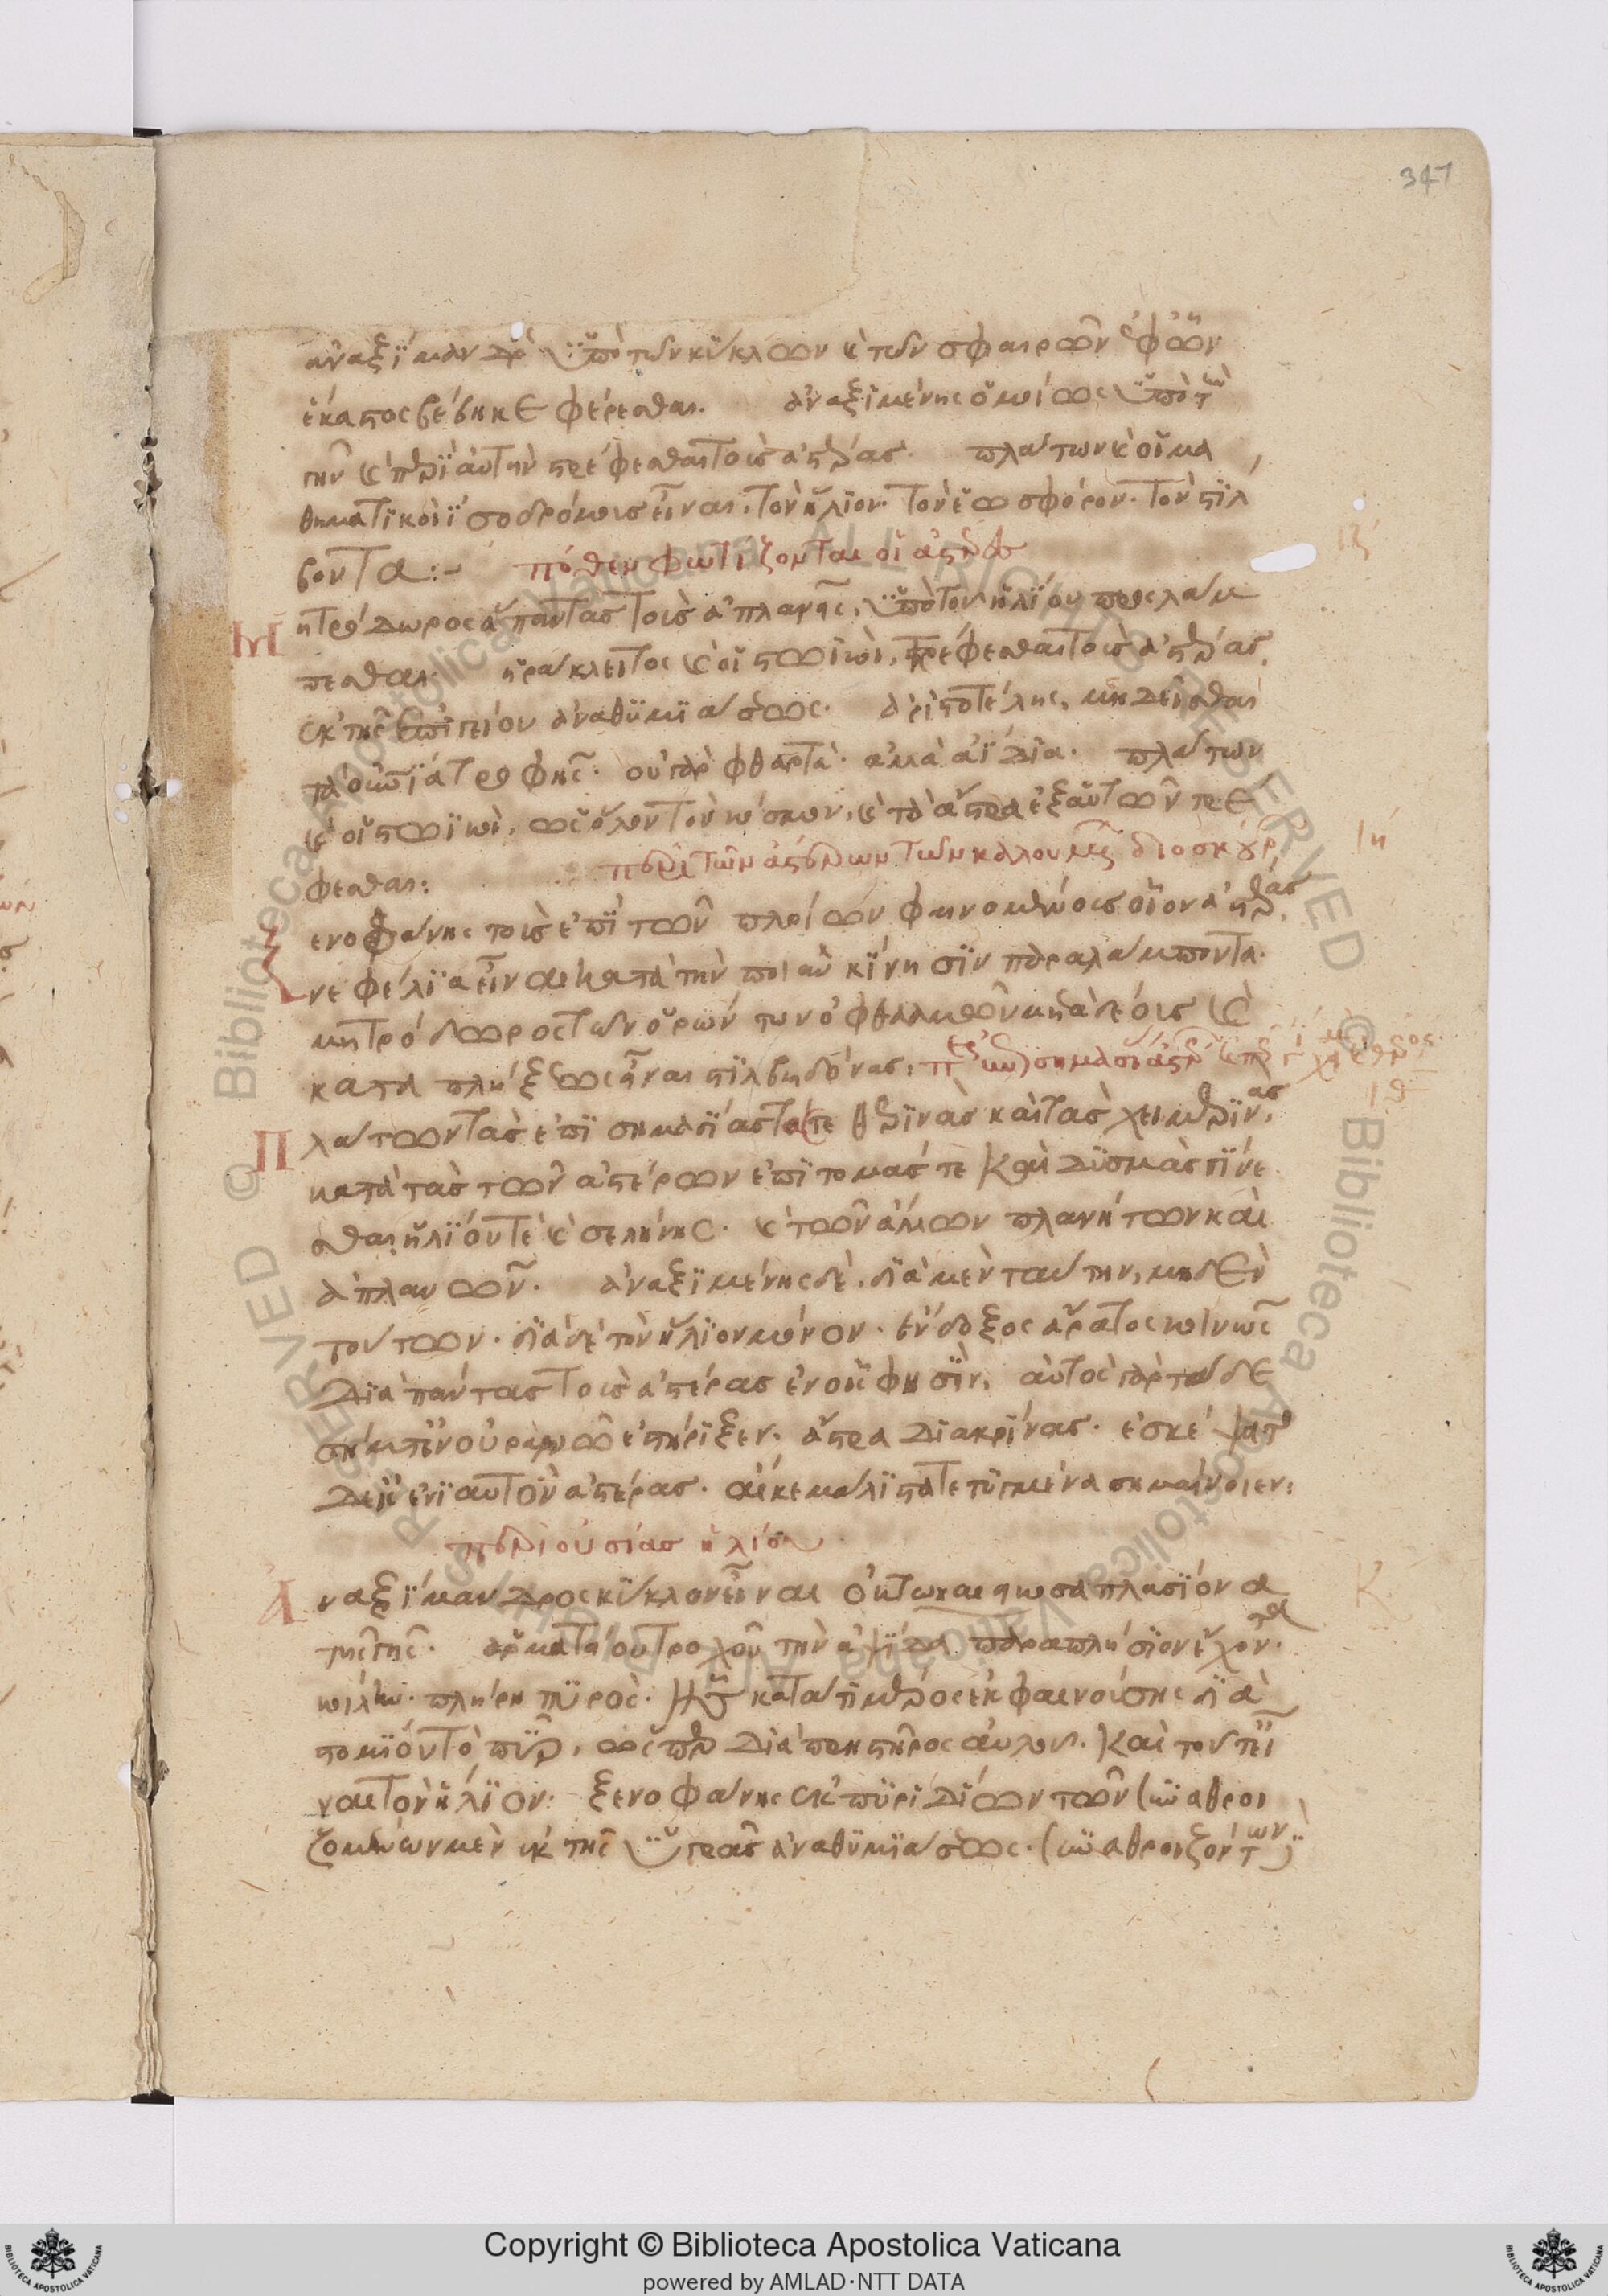 347
ἀναξίμανδρος ὑπὸ τῶν κύκλων καὶ τῶν σφαιρῶν ἐφ' ὧν
ἕκαστος βέβηκε φέρεσθαι. ἀναξιμένης ὁμοίως ὑπὸ τὴν
γῆν καὶ περὶ αὐτὴν στρέφεσθαι τοὺς ἀστέρας. πλάτων καὶ οἱ μα
θηματικοὶ ἰσοδρόμους εἶναι, τὸν ἥλιον. τὸν ἑωσφόρον. τὸν στίλ
βοντα:- πόθεν φωτίζονται οἱ ἀστέρες
ιζ
Μητρόδωρος ἅπαντας τοὺς ἀπλανῆς, ὑπὸ τοῦ ἡλίου προσλάμ
πεσθαι. ἡράκλειτος καὶ οἱ στωϊκοὶ, τρέφεσθαι τοὺς ἀστέρας,
ἐκ τῆς ἐπιγείου ἀναθυμιάσεως. ἀριστοτέλης, μὴ δεῖσθαι
τὰ οὐράνια τροφῆς. οὐ γὰρ φθαρτὰ. ἀλλὰ ἀΐδια. πλάτων
καὶ οἱ στωϊκοὶ, ὡς ὅλον τὸν κόσμον, καὶ τὰ ἄστρα ἐξ αὐτῶν τρέ
φεσθαι: περὶ τῶν ἀστέρων τῶν καλουμένων διοσκούρων
ιη
Ξενοφάνης τοὺς ἐπὶ τῶν πλοίων φαινομένους οἷον ἀστέρας,
νεφέλια εἶναι κατὰ τὴν ποιὰν κίνησιν παραλάμποντα.
μητρόδωρος τῶν ὁρώντων ὀφθαλμῶν μετὰ δέους καὶ
καταπλήξεως εἶναι στιλβηδόνας: περὶ ἐπισημασίας ἀστέρων
ιθ
Πλάτων τὰς ἐπισημασίας τάς τε θερινὰς καὶ τὰς χειμερινὰς,
κατὰ τὰς τῶν ἀστέρων ἐπιτομάς τε καὶ δυσμὰς γίνε
σθαι, ἡλίου τε καὶ σελήνης. καὶ τῶν ἄλλων πλανήτων καὶ
ἀπλανῶν. ἀναξιμένης δὲ, διὰ μὲν ταύτην, μηδὲν
τούτων. διὰ δὲ τὸν ἥλιον μόνον. εὔδοξος ἄρατος κοινῶς
διὰ πάντας τοὺς ἀστέρας ἐν οἷς φησὶν, αὐτὸς γὰρ τάδε
σήματ' ἐν οὐρανῷ ἐστήριξεν. ἄστρα διακρίνας. ἐσκέψατο
δ' εἰς ἐνιαυτὸν ἀστέρας. οἵ κε μάλιστα τετυγμένα σημαίνοιεν:
περὶ οὐσίας ἡλίου
κ
Ἀναξίμανδρος κύκλον εἶναι ὀκτωκαιεικοσαπλασίονα
τῆς γῆς. ἁρματείου τροχοῦ τὴν ἁψῖδα παραπλήσιον ἔχοντα.
κοίλην. πλήρη πυρός. ἧς κατά τι μέρος ἐκφαινούσης διὰ
στομίου τὸ πῦρ, ὥσπερ διὰ πρηστῆρος αὐλοῦ. καὶ τοῦτ' εἶ
ναι τὸν ἥλιον: ξενοφάνης ἐκ πυριδίων τῶν συναθροι
ζομένων μὲν ἐκ τῆς ὑγρᾶς ἀναθυμιάσεως. συναθροιζόντων
Copyright © Biblioteca Apostolica Vaticana
powered by AMLAD·NTT DATA